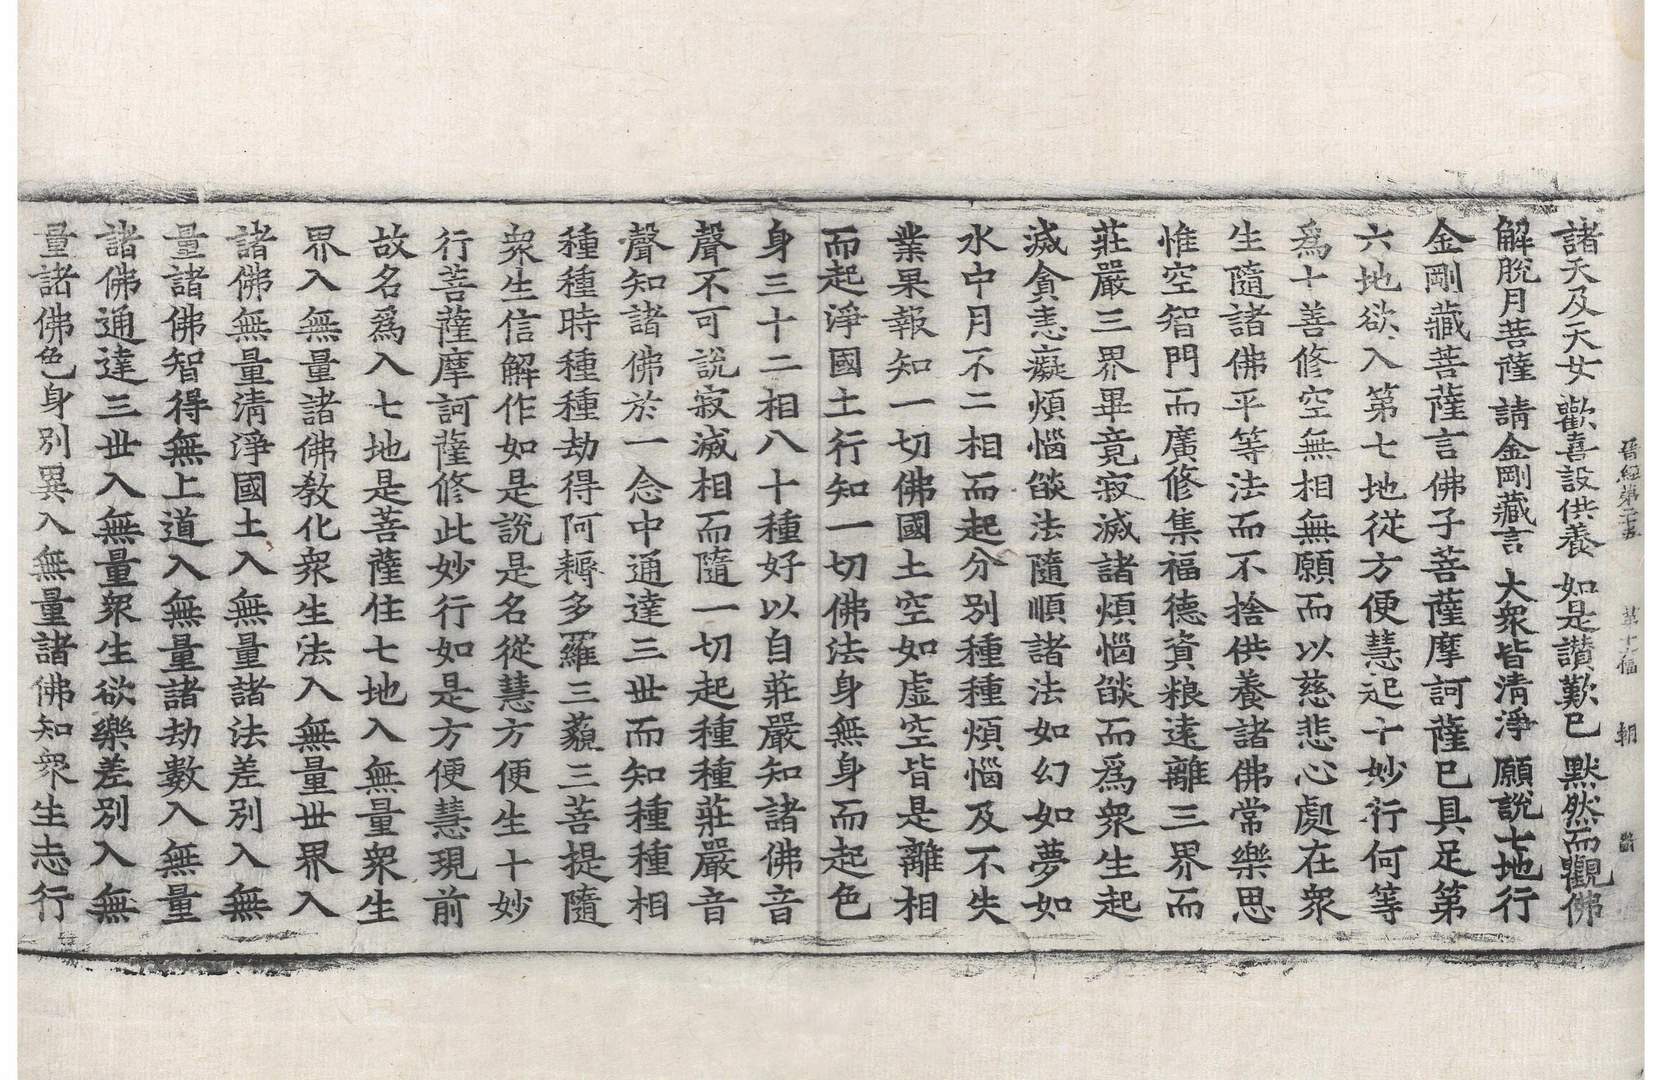 晉經第二十五 第十六幅 朝
諸天及天女 歡喜設供養 如是讃歎已 默然而觀佛
解脫月菩薩 請金剛藏言 大衆皆清淨 願說七地行
金剛藏菩薩言佛子菩薩摩訶薩已具足第
六地欲入第七地從方便慧起十妙行何等
爲十善修空無相無願而以慈悲心處在衆
生隨諸佛平等法而不捨供養諸佛常樂思
惟空智門而廣修集福德資粮遠離三界而
莊嚴三界畢竟寂滅諸煩惱㷔而爲衆生起
滅貪恚癡煩惱㷔法隨順諸法如幻如夢如
水中月不二相而起分別種種煩惱及不失
業果報知一切佛國土空如虛空皆是離相
而起淨國土行知一切佛法身無身而起色
身三十二相八十種好以自莊嚴知諸佛音
聲不可說寂滅相而隨一切起種種莊嚴音
聲知諸佛於一念中通達三世而知種種相
種種時種種劫得阿耨多羅三藐三菩提隨
衆生信解作如是說是名從慧方便生十妙
行菩薩摩訶薩修此妙行如是方便慧現前
故名爲入七地是菩薩住七地入無量衆生
界入無量諸佛教化衆生法入無量世界入
諸佛無量清淨國土入無量諸法差別入無
量諸佛智得無上道入無量諸劫數入無量
諸佛通達三世入無量衆生欲樂差別入無
量諸佛色身別異入無量諸佛知衆生志行